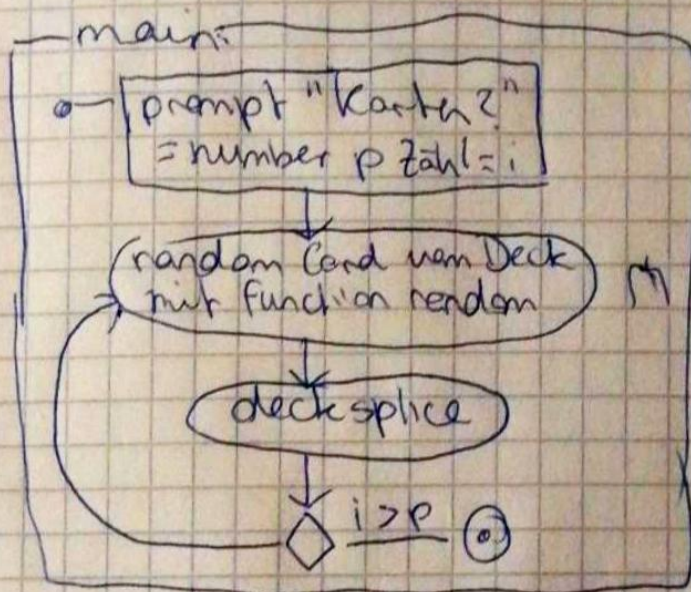 main:
prompt "Karten?"
= number p Zähl = i
random Card vom Deck
mit function random
deck splice
i > p